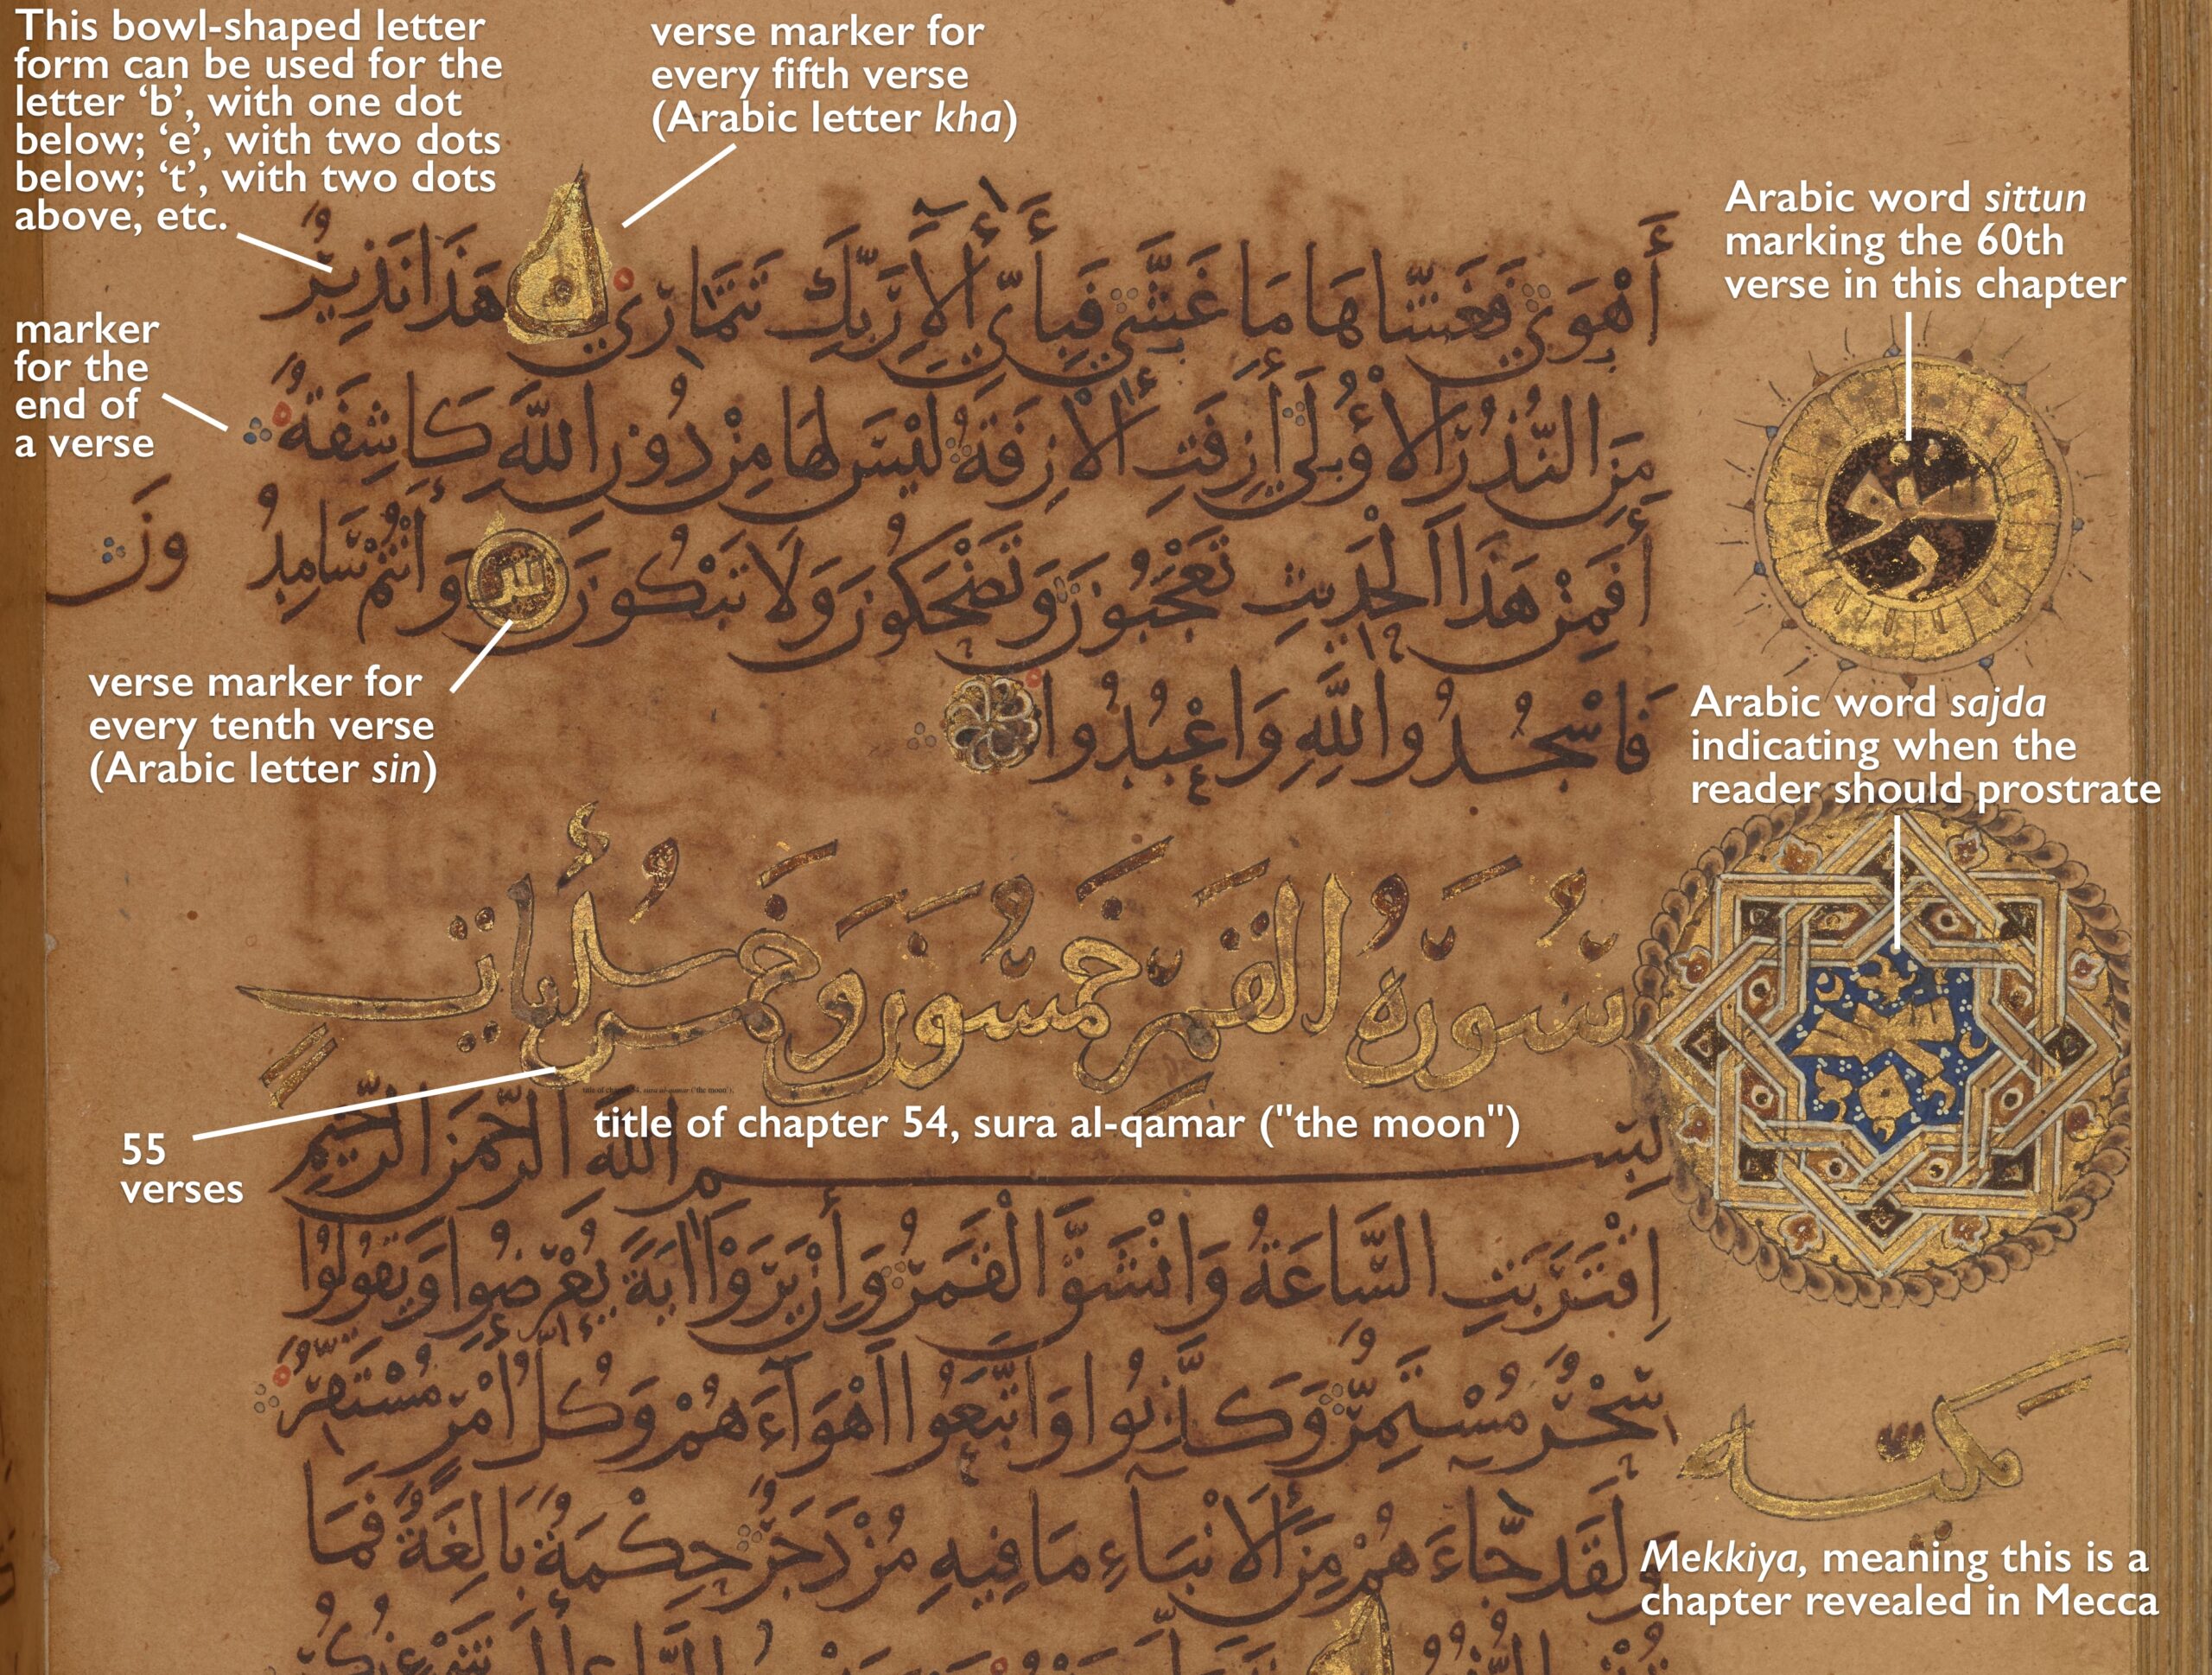 This bowl-shaped letter
form can be used for the
letter ‘b’, with one dot
below; ‘e’, with two dots
below; ‘t’, with two dots
above, etc.
verse marker for
every fifth verse
(Arabic letter kha)
Arabic word sittun
marking the 60th
verse in this chapter
marker
for the
end of
a verse
verse marker for
every tenth verse
(Arabic letter sin)
Arabic word sajda
indicating when the
reader should prostrate
55
verses
title of chapter 54, sura al-qamar ("the moon")
Mekkiya, meaning this is a
chapter revealed in Mecca
أَهْوَى فَغَشَّاهَا مَا غَشَّى فَبِأَيِّ آلَاءِ رَبِّكَ تَتَمَارَى هَذَا نَذِيرٌ
مِنَ النُّذُرِ الْأُولَى أَزِفَتِ الْآزِفَةُ لَيْسَ لَهَا مِنْ دُونِ اللَّهِ كَاشِفَةٌ
أَفَمِنْ هَذَا الْحَدِيثِ تَعْجَبُونَ وَتَضْحَكُونَ وَلَا تَبْكُونَ وَأَنْتُمْ سَامِدُ
ونَ
فَاسْجُدُوا لِلَّهِ وَاعْبُدُوا
سُورَةُ الْقَمَرِ خَمْسُونَ وَخَمْسُ آيَاتٍ
بِسْمِ اللَّهِ الرَّحْمَنِ الرَّحِيمِ
اقْتَرَبَتِ السَّاعَةُ وَانْشَقَّ الْقَمَرُ وَإِنْ يَرَوْا آيَةً يُعْرِضُوا وَيَقُولُوا
سِحْرٌ مُسْتَمِرٌّ وَكَذَّبُوا وَاتَّبَعُوا أَهْوَاءَهُمْ وَكُلُّ أَمْرٍ مُسْتَقِرٌّ
وَلَقَدْ جَاءَهُمْ مِنَ الْأَنْبَاءِ مَا فِيهِ مُزْدَجَرٌ حِكْمَةٌ بَالِغَةٌ فَمَا
ستون
سجدة
مكية